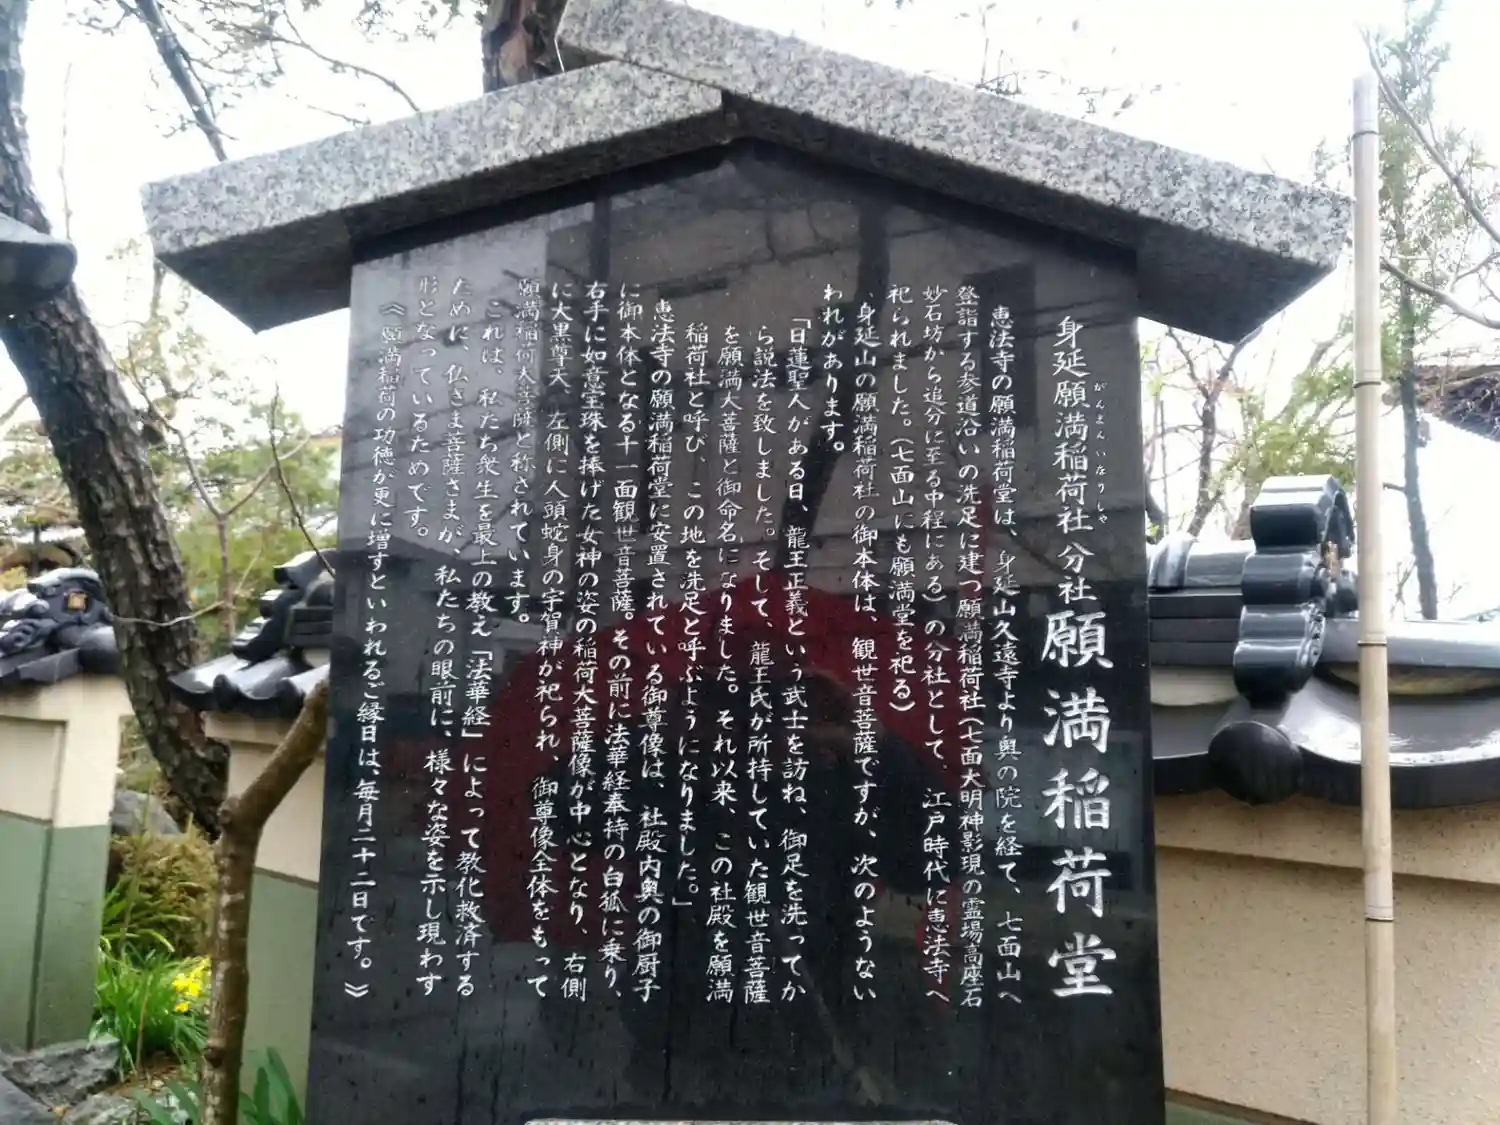 身延願満稲荷社分社願満稲荷堂
がんまんいなりしゃ
恵法寺の願満稲荷堂は、身延山久遠寺より奥の院を経て、七面山へ
登詣する参道沿いの洗足に建つ願満稲荷社(七面大明神影現の霊場高座石
妙石坊から追分に至る中程にある)の分社として、江戸時代に恵法寺へ
祀られました。(七面山にも願満堂を祀る)
身延山の願満稲荷社の御本体は、観世音菩薩ですが、次のようない
われがあります。
「日蓮聖人がある日、龍王正義という武士を訪ね、御足を洗ってか
ら説法を致しました。そして、龍王氏が所持していた観世音菩薩
を願満大菩薩と御命名になりました。それ以来、この社殿を願満
稲荷社と呼び、この地を洗足と呼ぶようになりました。」
恵法寺の願満稲荷堂に安置されている御尊像は、社殿内奥の御厨子
に御本体となる十一面観世音菩薩。その前に法華経奉持の白狐に乗り、
右手に如意宝珠を捧げた女神の姿の稲荷大菩薩像が中心となり、右側
に大黒尊天、左側に人頭蛇身の宇賀神が祀られ、御尊像全体をもって
願満稲荷大菩薩と称されています。
これは、私たち衆生を最上の教え「法華経」によって教化救済する
ために、仏さま菩薩さまが、私たちの眼前に、様々な姿を示し現わす
形となっているためです。
《願満稲荷の功徳が更に増すといわれるご縁日は、毎月二十二日です。》